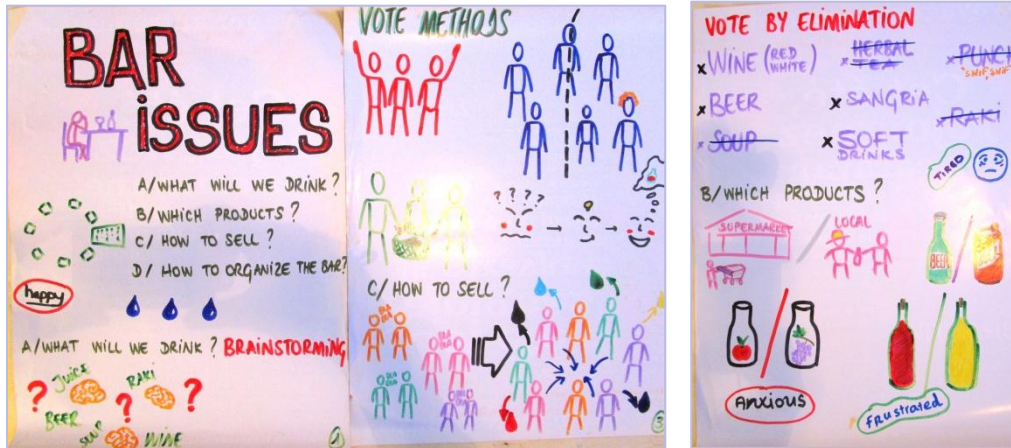 BAR
ISSUES
A/WHAT WILL WE DRINK?
B/WHICH PRODUCTS?
C/ HOW TO SELL?
D/ HOW TO ORGANIZE THE BAR?
happy
A/WHAT WILL WE DRINK? BRAINSTORMING
? JUICE ? RAKI ?
BEER
SOUP WINE
1
VOTE METHODS
? ? ? ?
C/ HOW TO SELL?
BLA BLA
BLA BLA
BLA BLA
BLA BLA
3
VOTE BY ELIMINATION
x WINE (RED WHITE) x HERBAL TEA x PUNCH
x BEER x SANGRIA x RAKI
x SOUP x SOFT DRINKS
TIRED
B/WHICH PRODUCTS?
SUPERMARKET / LOCAL
BEER
Anxious
Frustrated